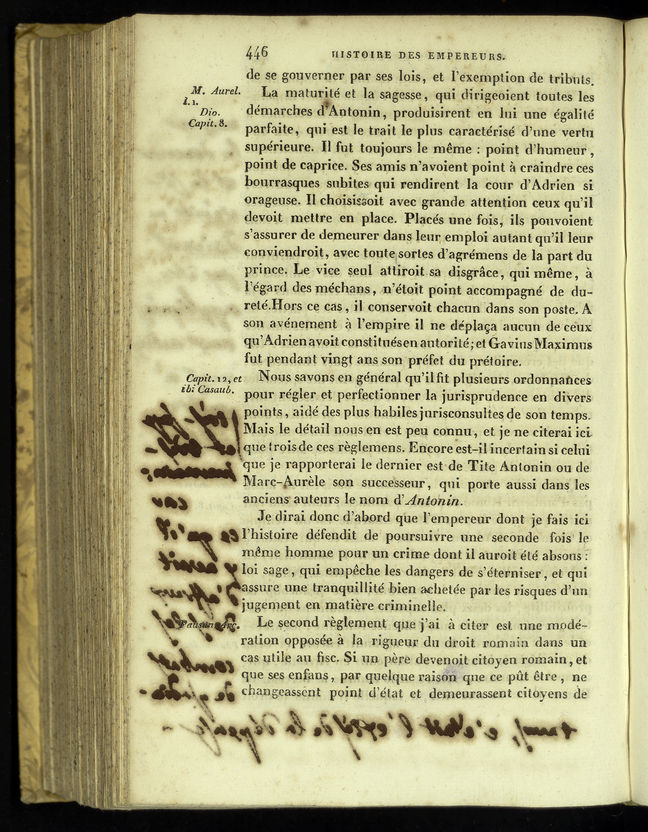 446 HISTOIRE DES EMPEREURS.
de se gouverner par ses lois, et l'exemption de tributs.
M. Aurel. l. 1.
Dio.
Capit. 8.
La maturité et la sagesse, qui dirigeoient toutes les
démarches d'Antonin, produisirent en lui une égalité
parfaite, qui est le trait le plus caractérisé d'une vertu
supérieure. Il fut toujours le même : point d'humeur,
point de caprice. Ses amis n'avoient point à craindre ces
bourrasques subites qui rendirent la cour d'Adrien si
orageuse. Il choisissoit avec grande attention ceux qu'il
devoit mettre en place. Placés une fois, ils pouvoient
s'assurer de demeurer dans leur emploi autant qu'il leur
conviendroit, avec toute sortes d'agrémens de la part du
prince. Le vice seul attiroit sa disgrâce, qui même, à
l'égard des méchans, n'étoit point accompagné de du-
reté. Hors ce cas, il conservoit chacun dans son poste. A
son avénement à l'empire il ne déplaça aucun de ceux
qu'Adrien avoit constitués en autorité; et Gavius Maximus
fut pendant vingt ans son préfet du prétoire.
Capit. 12, et
ibi Casaub.
Nous savons en général qu'il fit plusieurs ordonnances
pour régler et perfectionner la jurisprudence en divers
points, aidé des plus habiles jurisconsultes de son temps.
Mais le détail nous en est peu connu, et je ne citerai ici
que trois de ces règlemens. Encore est-il incertain si celui
que je rapporterai le dernier est de Tite Antonin ou de
Marc-Aurèle son successeur, qui porte aussi dans les
anciens auteurs le nom d'Antonin.
Je dirai donc d'abord que l'empereur dont je fais ici
l'histoire défendit de poursuivre une seconde fois le
même homme pour un crime dont il auroit été absous :
loi sage, qui empêche les dangers de s'éterniser, et qui
assure une tranquillité bien achetée par les risques d'un
jugement en matière criminelle.
Pausan. Arc.
Le second règlement que j'ai à citer est une modé-
ration opposée à la rigueur du droit romain dans un
cas utile au fisc. Si un père devenoit citoyen romain, et
que ses enfans, par quelque raison que ce pût être, ne
changeassent point d'état et demeurassent citoyens de
car
ce qu'il
y auroit
d'affreux